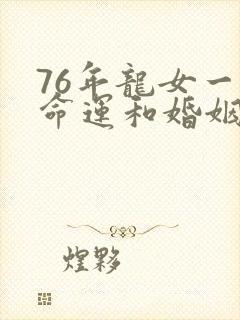 76年龍女一
命運和婚姻
煌夥